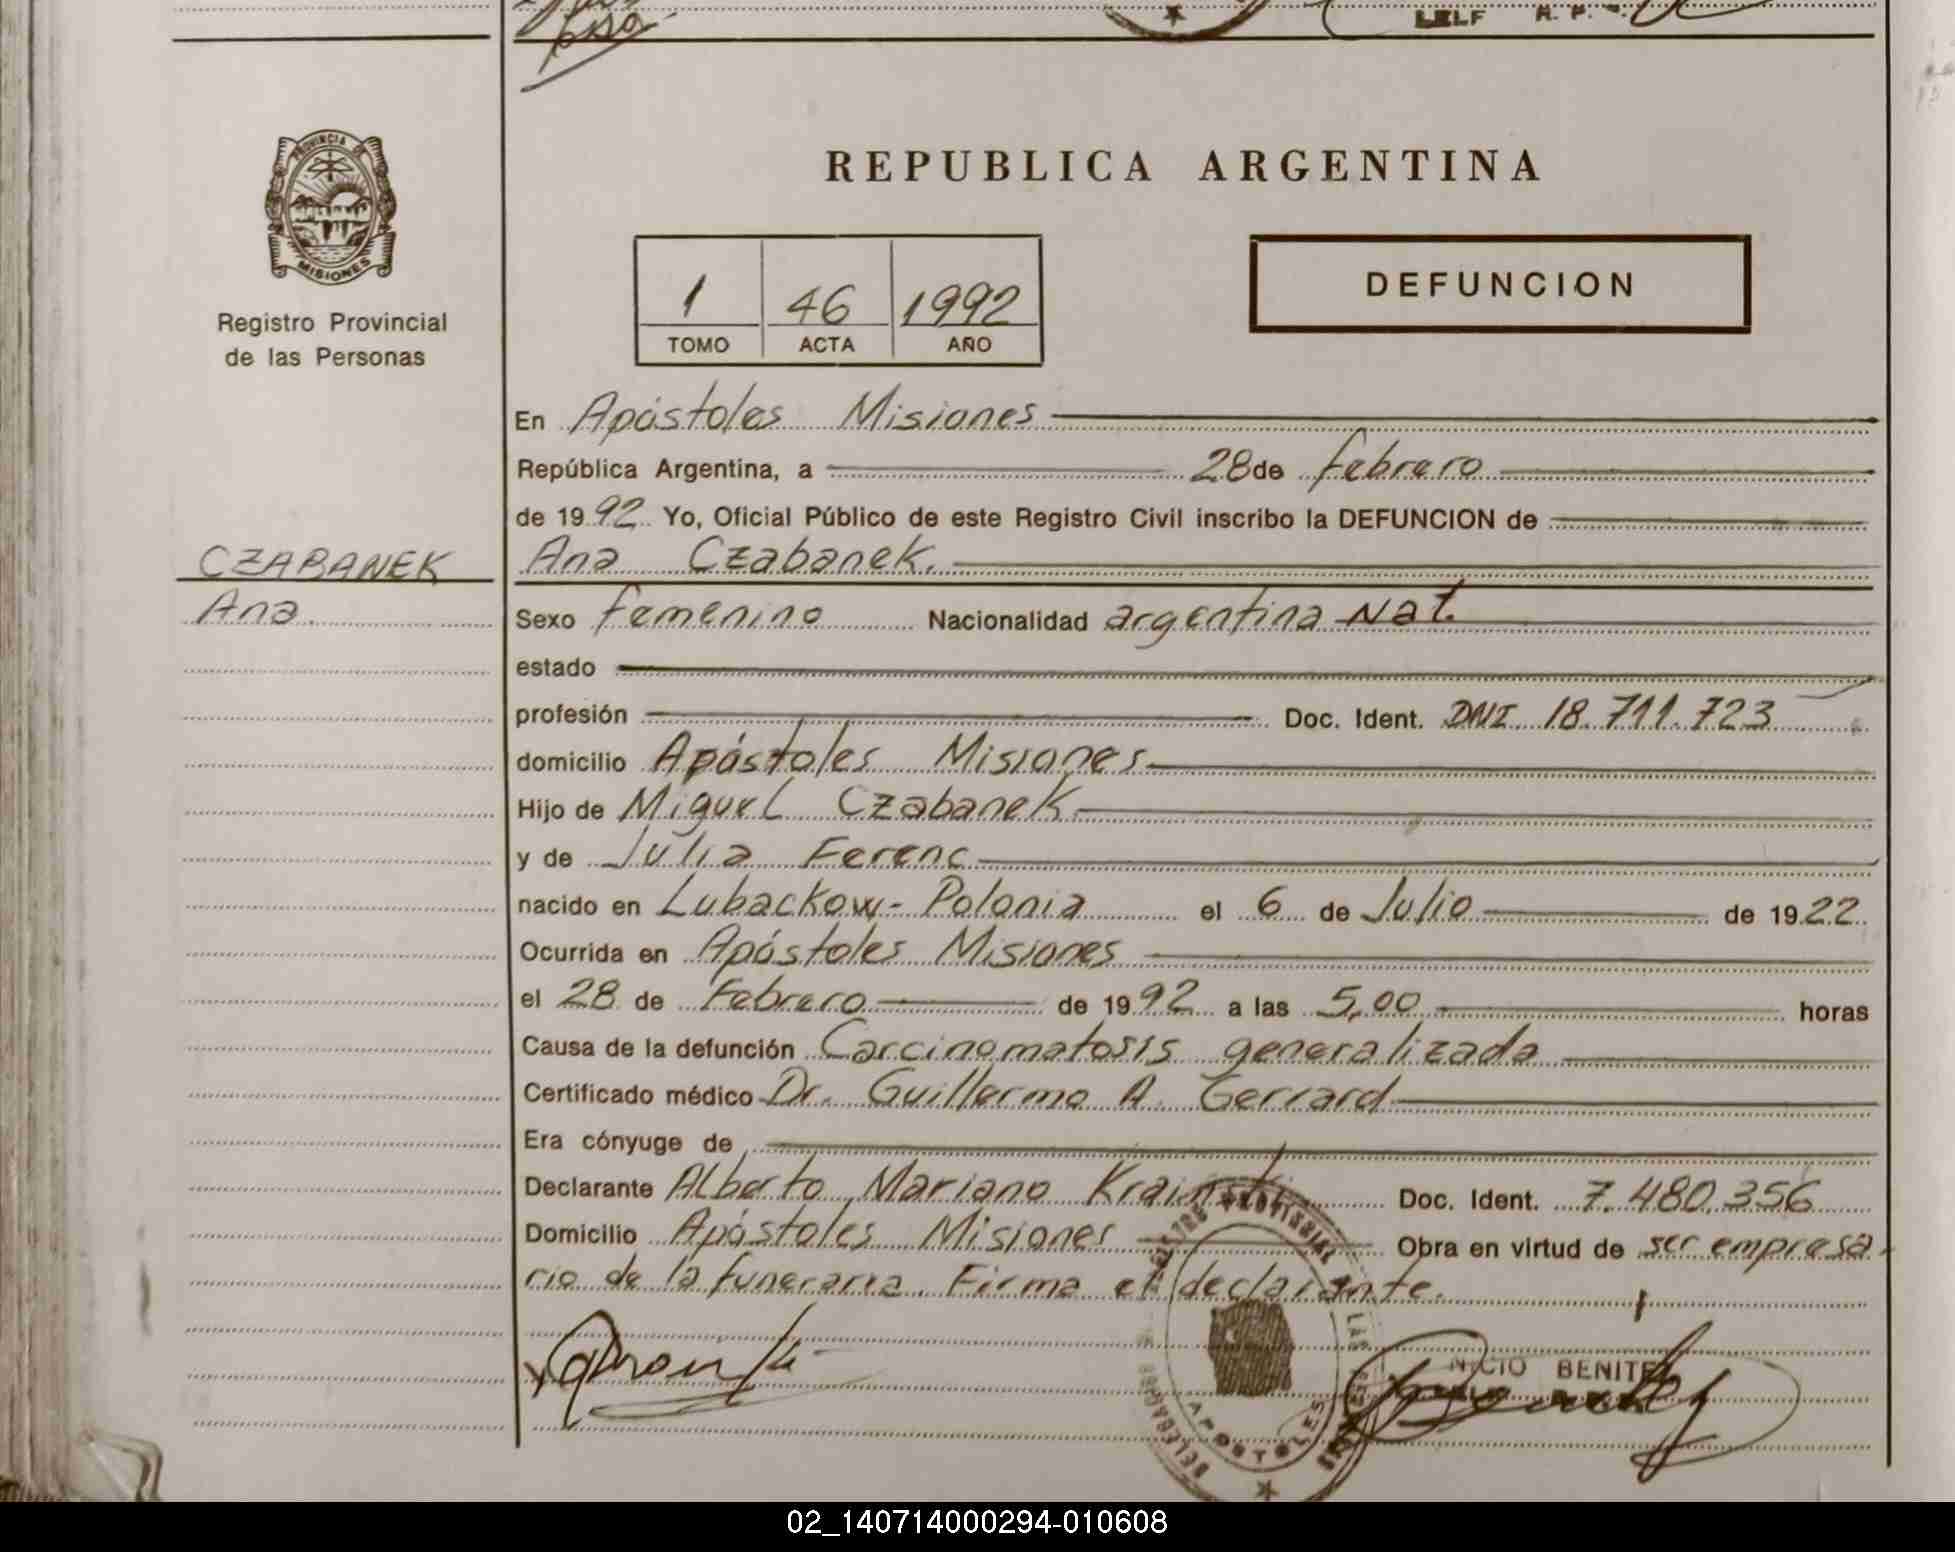 LELF R. P.
PROVINCIA DE
MISIONES
Registro Provincial
de las Personas
REPUBLICA ARGENTINA
1 46 1992
TOMO ACTA AÑO
DEFUNCION
En Apóstoles Misiones
República Argentina, a 28 de febrero
de 1992 Yo, Oficial Público de este Registro Civil inscribo la DEFUNCION de
CZABANEK Ana Czabanek.
Ana Sexo femenino Nacionalidad argentina Nat.
estado
profesión Doc. Ident. DNI 18.711.723
domicilio Apóstoles Misiones
Hijo de Miguel Czabanek
y de Julia Ferenc
nacido en Lubackow - Polonia el 6 de Julio de 1922
Ocurrida en Apóstoles Misiones
el 28 de Febrero de 1992 a las 5,00 horas
Causa de la defunción Carcinomatosis generalizada
Certificado médico Dr. Guillermo A. Gerrard
Era cónyuge de
Declarante Alberto Mariano Krainski Doc. Ident. 7.480.356
Domicilio Apóstoles Misiones Obra en virtud de ser empresa-
rio de la funeraria. Firma el declarante.
NICIO BENITEZ
APOSTOLES
02_140714000294-010608